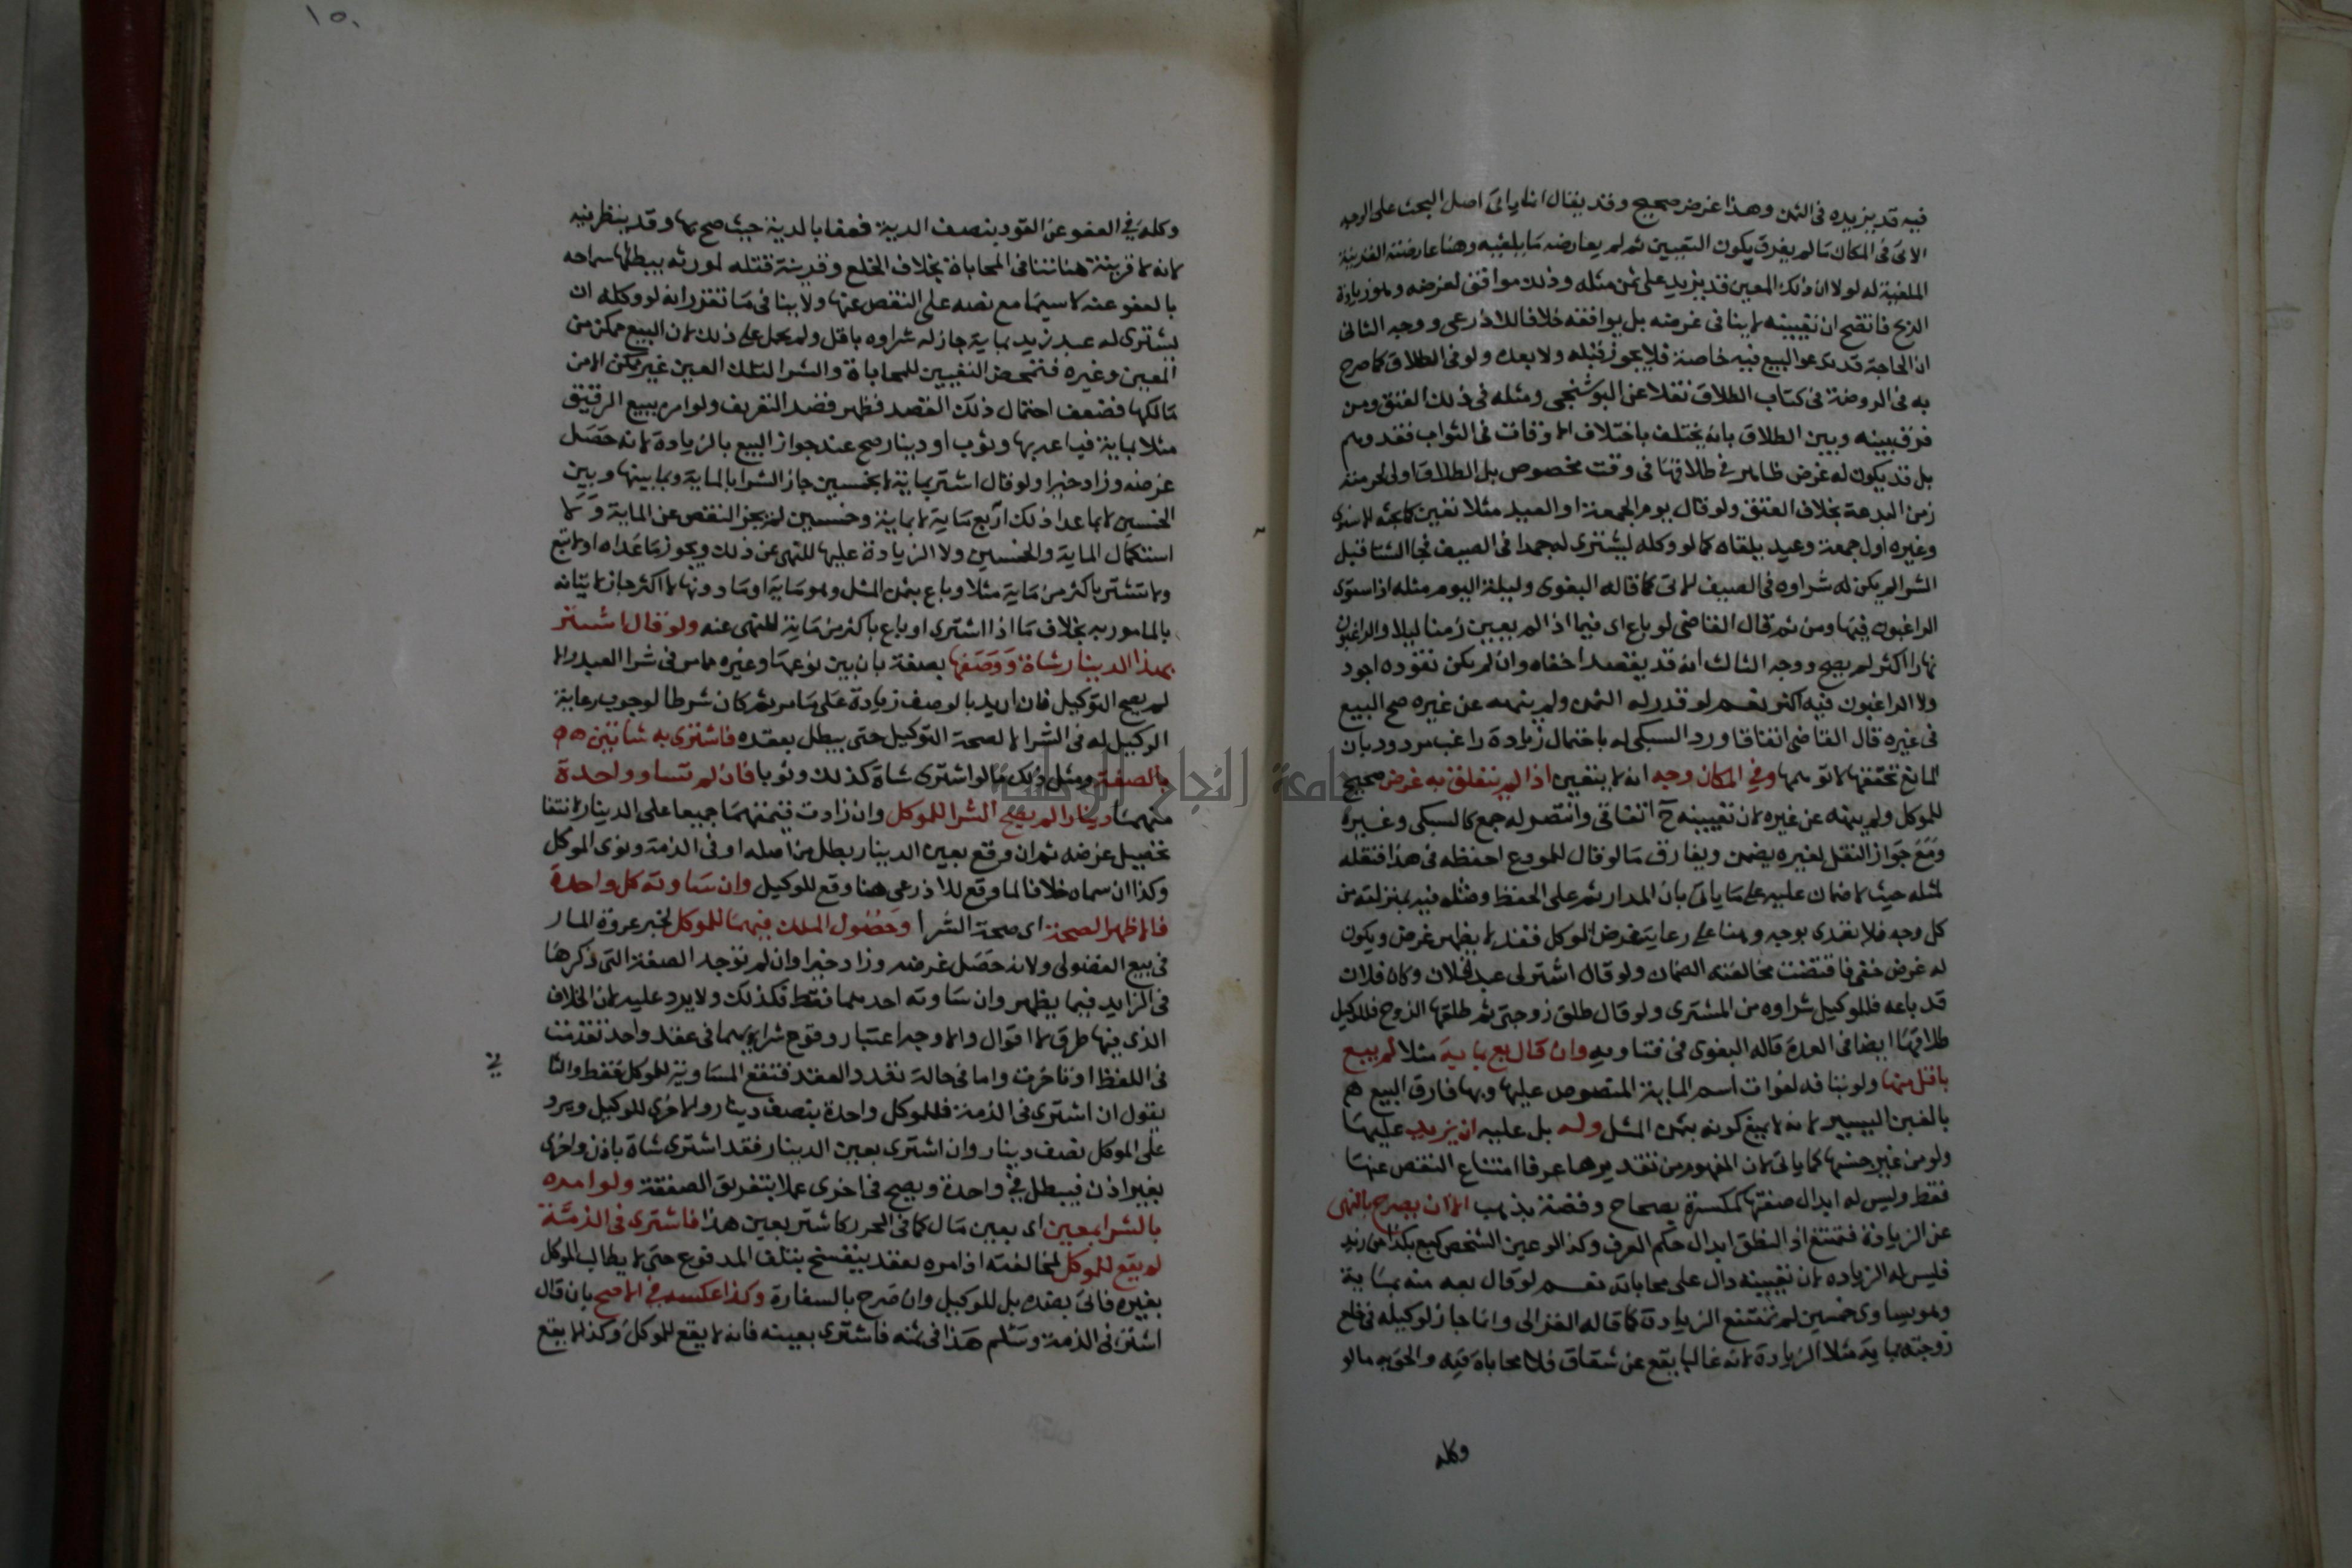 فيه قد يزيده في الثمن وهذا غرض صحيح وقد يقال انما ياتى اصل البحث على الوجه
الاتى في المكان ما لم يفرق بكون التعيين ثم لم يعارضه ما يلغيه وهنا عارضته القرينة
الملغية له لولا ان ذلك المعين قد يزيد على ثمن مثله وذلك موافق لغرضه وهو زيادة
الربح فاتضح ان تعيينه لا ينافى غرضه بل يوافقه خلافا للاذرعى ووجه الثانى
ان الحاجة قد تدعو للبيع فيه خاصة فلا يجوز قبله ولا بعده ولو فى الطلاق كما صرح
به فى الروضة فى كتاب الطلاق نقلا عن البوشنجى ومثله فى ذلك العتق ومن
فرق بينه وبين الطلاق بانه يختلف باختلاف الاوقات فى الثواب فقد وهم
بل قد يكون له غرض ظاهر فى طلاقها فى وقت مخصوص بل الطلاق اولى لحرمته
زمن البدعة بخلاف العتق ولو قال يوم الجمعة او العيد مثلا تعين كما بحثه الاسنوى
وغيره اول جمعة وعيد يلقاه كما لو وكله ليشترى له جمدا فى الصيف فجا الشتا قبل
الشرا لم يكن له شراوه فى الصيف الاتى كما قاله البغوى وليلة اليوم مثله اذا استوى
الراغبون فيهما ومن ثم قال القاضى لو باع اى فيما اذا لم يعين زمنا ليلا والراغبون
نهارا اكثر لم يصح ووجه الثالث انه قد يقصد اخفاه وان لم يكن نقوده اجود
ولا الراغبون فيه اكثر نعم لو قدر له الثمن ولم ينهه عن غيره صح البيع
فى غيره قال القاضى اتفاقا ورد السبكى له باحتمال زيادة راغب مردود بان
المانع تحققها لا توهمها وفي المكان وجه انه لا يتعين اذا لم يتعلق به غرض صحيح
للموكل ولم ينهه عن غيره لان تعيينه ح اتفاقى وانتصر له جمع كالسبكى وغيره
ومع جواز النقل لغيره يضمن ويفارق ما لو قال للمودع احفظه فى هذا فنقله
لمثله حيث لا ضمان عليه على ما ياتى بان المدار ثم على الحفظ ومثله فيه بمنزلته من
كل وجه فلا تعدى بوجه وهنا على رعاية غرض الموكل فقد لا يظهر غرض ويكون
له غرض خفى فاقتضت مخالفته الضمان ولو قال اشتر لى عبد فلان وكان فلان
قد باعه فللوكيل شراوه من المشترى ولو قال طلق زوجتى ثم طلقها الزوج فللوكيل
طلاقها ايضا فى العدة قاله البغوى فى فتاويه وان قال بع بماية مثلا لم يبع
باقل منها ولو بتافه لفوات اسم الماية المنصوص عليها وبها فارق البيع
بالغبن اليسير لانه لا يمنع كونه بثمن المثل وله بل عليه ان يزيد عليها
ولو من غير جنسها كما ياتى لان المفهوم من تقديرها عرفا امتناع النقص عنها
فقط وليس له ابدال صفتها كمكسرة بصحاح وفضة بذهب الا ان يصرح بالنهى
عن الزيادة فتمتنع اذ النطق ابدال حكم العرف وكذا لو عين الشخص كبع بكذا من زيد
فليس له الزيادة لان تعيينه دال على محاباته نعم لو قال بعه منه بماية
وهو يساوى خمسين لم تمتنع الزيادة كما قاله الغزالى وانما جاز لوكيله فى خلع
زوجته بماية مثلا الزيادة لانه غالبا يقع عن شقاق فلا محاباة فيه والحق به ما لو
وكله
١٥٠
وكله في العفو عن القود بنصف الدية فعفا بالدية حيث صح بها وقد ينظر فيه
لانه لا قرينة هنا تنافى المحاباة بخلاف الخلع وقرينة قتله لمورثه يبطلها سماحه
بالعفو عنه لا سيما مع نصه على النقص عنها ولا ينافى ما تقرر انه لو وكله ان
يشترى له عبد زيد بماية جاز له شراوه باقل ولم يحمل على ذلك لان البيع ممكن من
المعين وغيره فتمحض التعيين للمحاباة والشرا لتلك العين غير ممكن الا من
مالكها فضعف احتمال ذلك القصد فظهر قصد التعريف ولو امر ببيع الرقيق
مثلا بماية فباعه بها وثوب او دينار صح عند جواز البيع بالزيادة لانه حصل
غرضه وزاد خيرا ولو قال اشتر بماية لا بخمسين جاز الشرا بالماية وبما بينها وبين
الخمسين لا بما عدا ذلك او بع بماية لا بماية وخمسين لم يجز النقص عن الماية ولا
استكمال الماية والخمسين ولا الزيادة عليها للنهى عن ذلك ويجوز ما عداه او لا تبع
ولا تشتر باكثر من ماية مثلا وباع بثمن المثل وهو ماية او ما دونها لا اكثر جاز لاتيانه
بالمامور به بخلاف ما اذا اشترى او باع باكثر من ماية للنهى عنه ولو قال اشتر
بهذا الدينار شاة ووصفها بصفة بان بين نوعها وغيره مما مر فى شرا العبد والا
لم يصح التوكيل فان اريد بالوصف زيادة على ما مر ثم كان شرطا لوجوب رعاية
الوكيل له فى الشرا لا لصحة التوكيل حتى يبطل بفقده فاشترى به شاتين
بالصفة ومثل ذلك ما لو اشترى شاة كذلك وثوبا فان لم تساو واحدة
منهما دينارا لم يصح الشرا للموكل وان زادت قيمتهما جميعا على الدينار لانتفا
تحصيل غرضه ثم ان وقع بعين الدينار بطل من اصله او فى الذمة ونوى الموكل
وكذا ان سماه خلافا لما وقع للاذرعى هنا وقع للوكيل وان ساوته كل واحدة
فالاظهر الصحة اى صحة الشرا وحصول الملك فيهما للموكل لخبر عروة المار
فى بيع الفضولى ولانه حصل غرضه وزاد خيرا وان لم توجد الصفة التى ذكرها
فى الزايد فيما يظهر وان ساوته احدهما فقط فكذلك ولا يرد عليه لان الخلاف
الذى فيها طرق لا اقوال والاوجه اعتبار وقوع شرايهما فى عقد واحد تقدمت
فى اللفظ او تاخرت واما فى حالة تعدد العقد فتقع المساوية للموكل فقط والثا
نى
يقول ان اشترى فى الذمة فللموكل واحدة بنصف دينار والاخرى للوكيل ويرد
على الموكل نصف دينار وان اشترى بعين الدينار فقد اشترى شاة باذن واخرى
بغير اذن فيبطل في واحدة ويصح فى اخرى عملا بتفريق الصفقة ولو امره
بالشرا بمعين اى بعين مال كما فى المحرر كاشتر بعين هذا فاشترى فى الذمة
لم يقع للموكل لمخالفته اذ امره بعقد ينفسخ بتلف المدفوع حتى لا يطالب الموكل
بغيره فاتى بضده بل للوكيل وان صرح بالسفارة وكذا عكسه في الاصح بان قال
اشتر فى الذمة وسلم هذا فى ثمنه فاشترى بعينه فانه لا يقع للموكل وكذا لا يقع
جامعة النجاح الوطنية